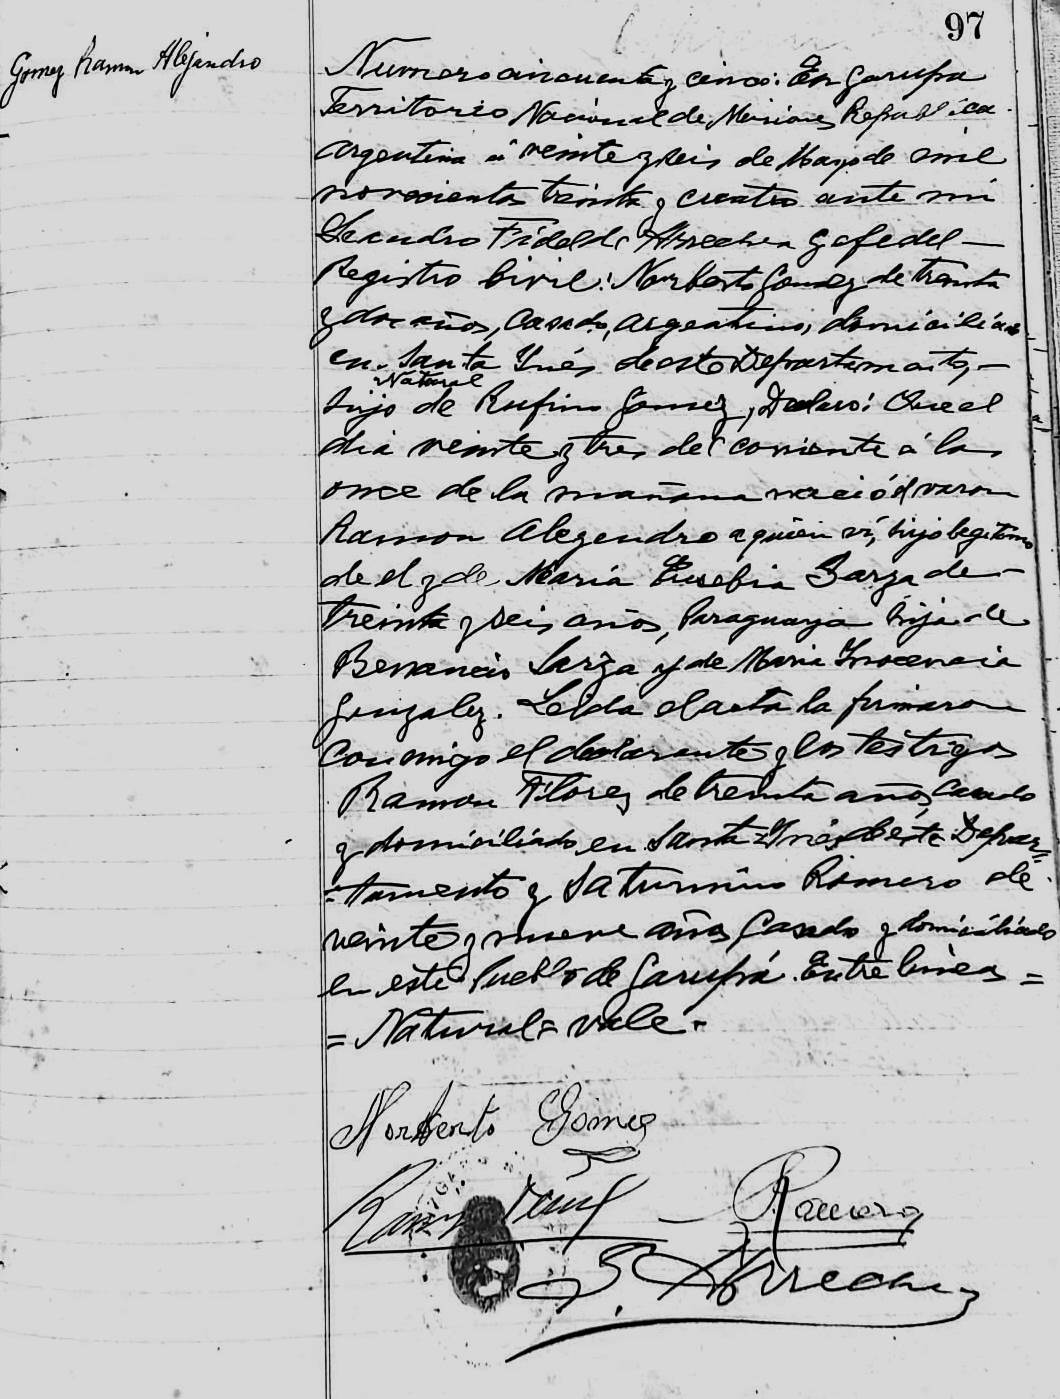 97
Gomez Ramon Alejandro
Numero cincuenta y cinco: En Garupa
Territorio Nacional de Misiones Republica
Argentina á veinte y seis de Mayo de mil
novecientos treinta y cuatro ante mi
Leandro Fidel de Arrechea Gefe del
Registro Civil: Norberto Gomez de treinta
y dos años, casado, argentino, domiciliado
en Santa Ynés de este Departamento,
Natural
hijo de Rufino Gomez, Declaró: Que el
dia veinte y tres del corriente á las
once de la mañana nació el varon
Ramon Alejandro a quien ví, hijo legitimo
de el y de Maria Eusebia Sarza de
treinta y seis años, Paraguaya hija de
Benancio Sarza y de Maria Ynocencia
Gonzalez. Leida el acta la firmaron
conmigo el declarante y los testigos
Ramon Flores de treinta años, casado
y domiciliado en Santa Ynés de este Depar=
=tamento y Saturnino Romero de
veinte y nueve años Casado y domiciliado
en este Pueblo de Garupá. Entre lineas =
= Natural = vale.
Norberto Gomez
Romero
Arrechea